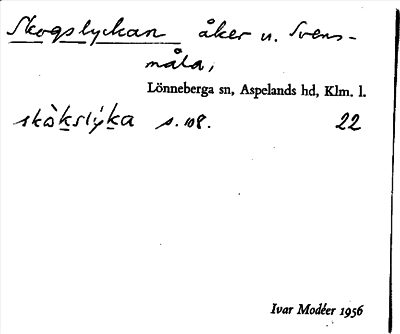 Skogslyckan åker u. Svens-
måla,
Lönneberga sn, Aspelands hd, Klm. l.
skòkslýka s. 108. 22
Ivar Modéer 1956